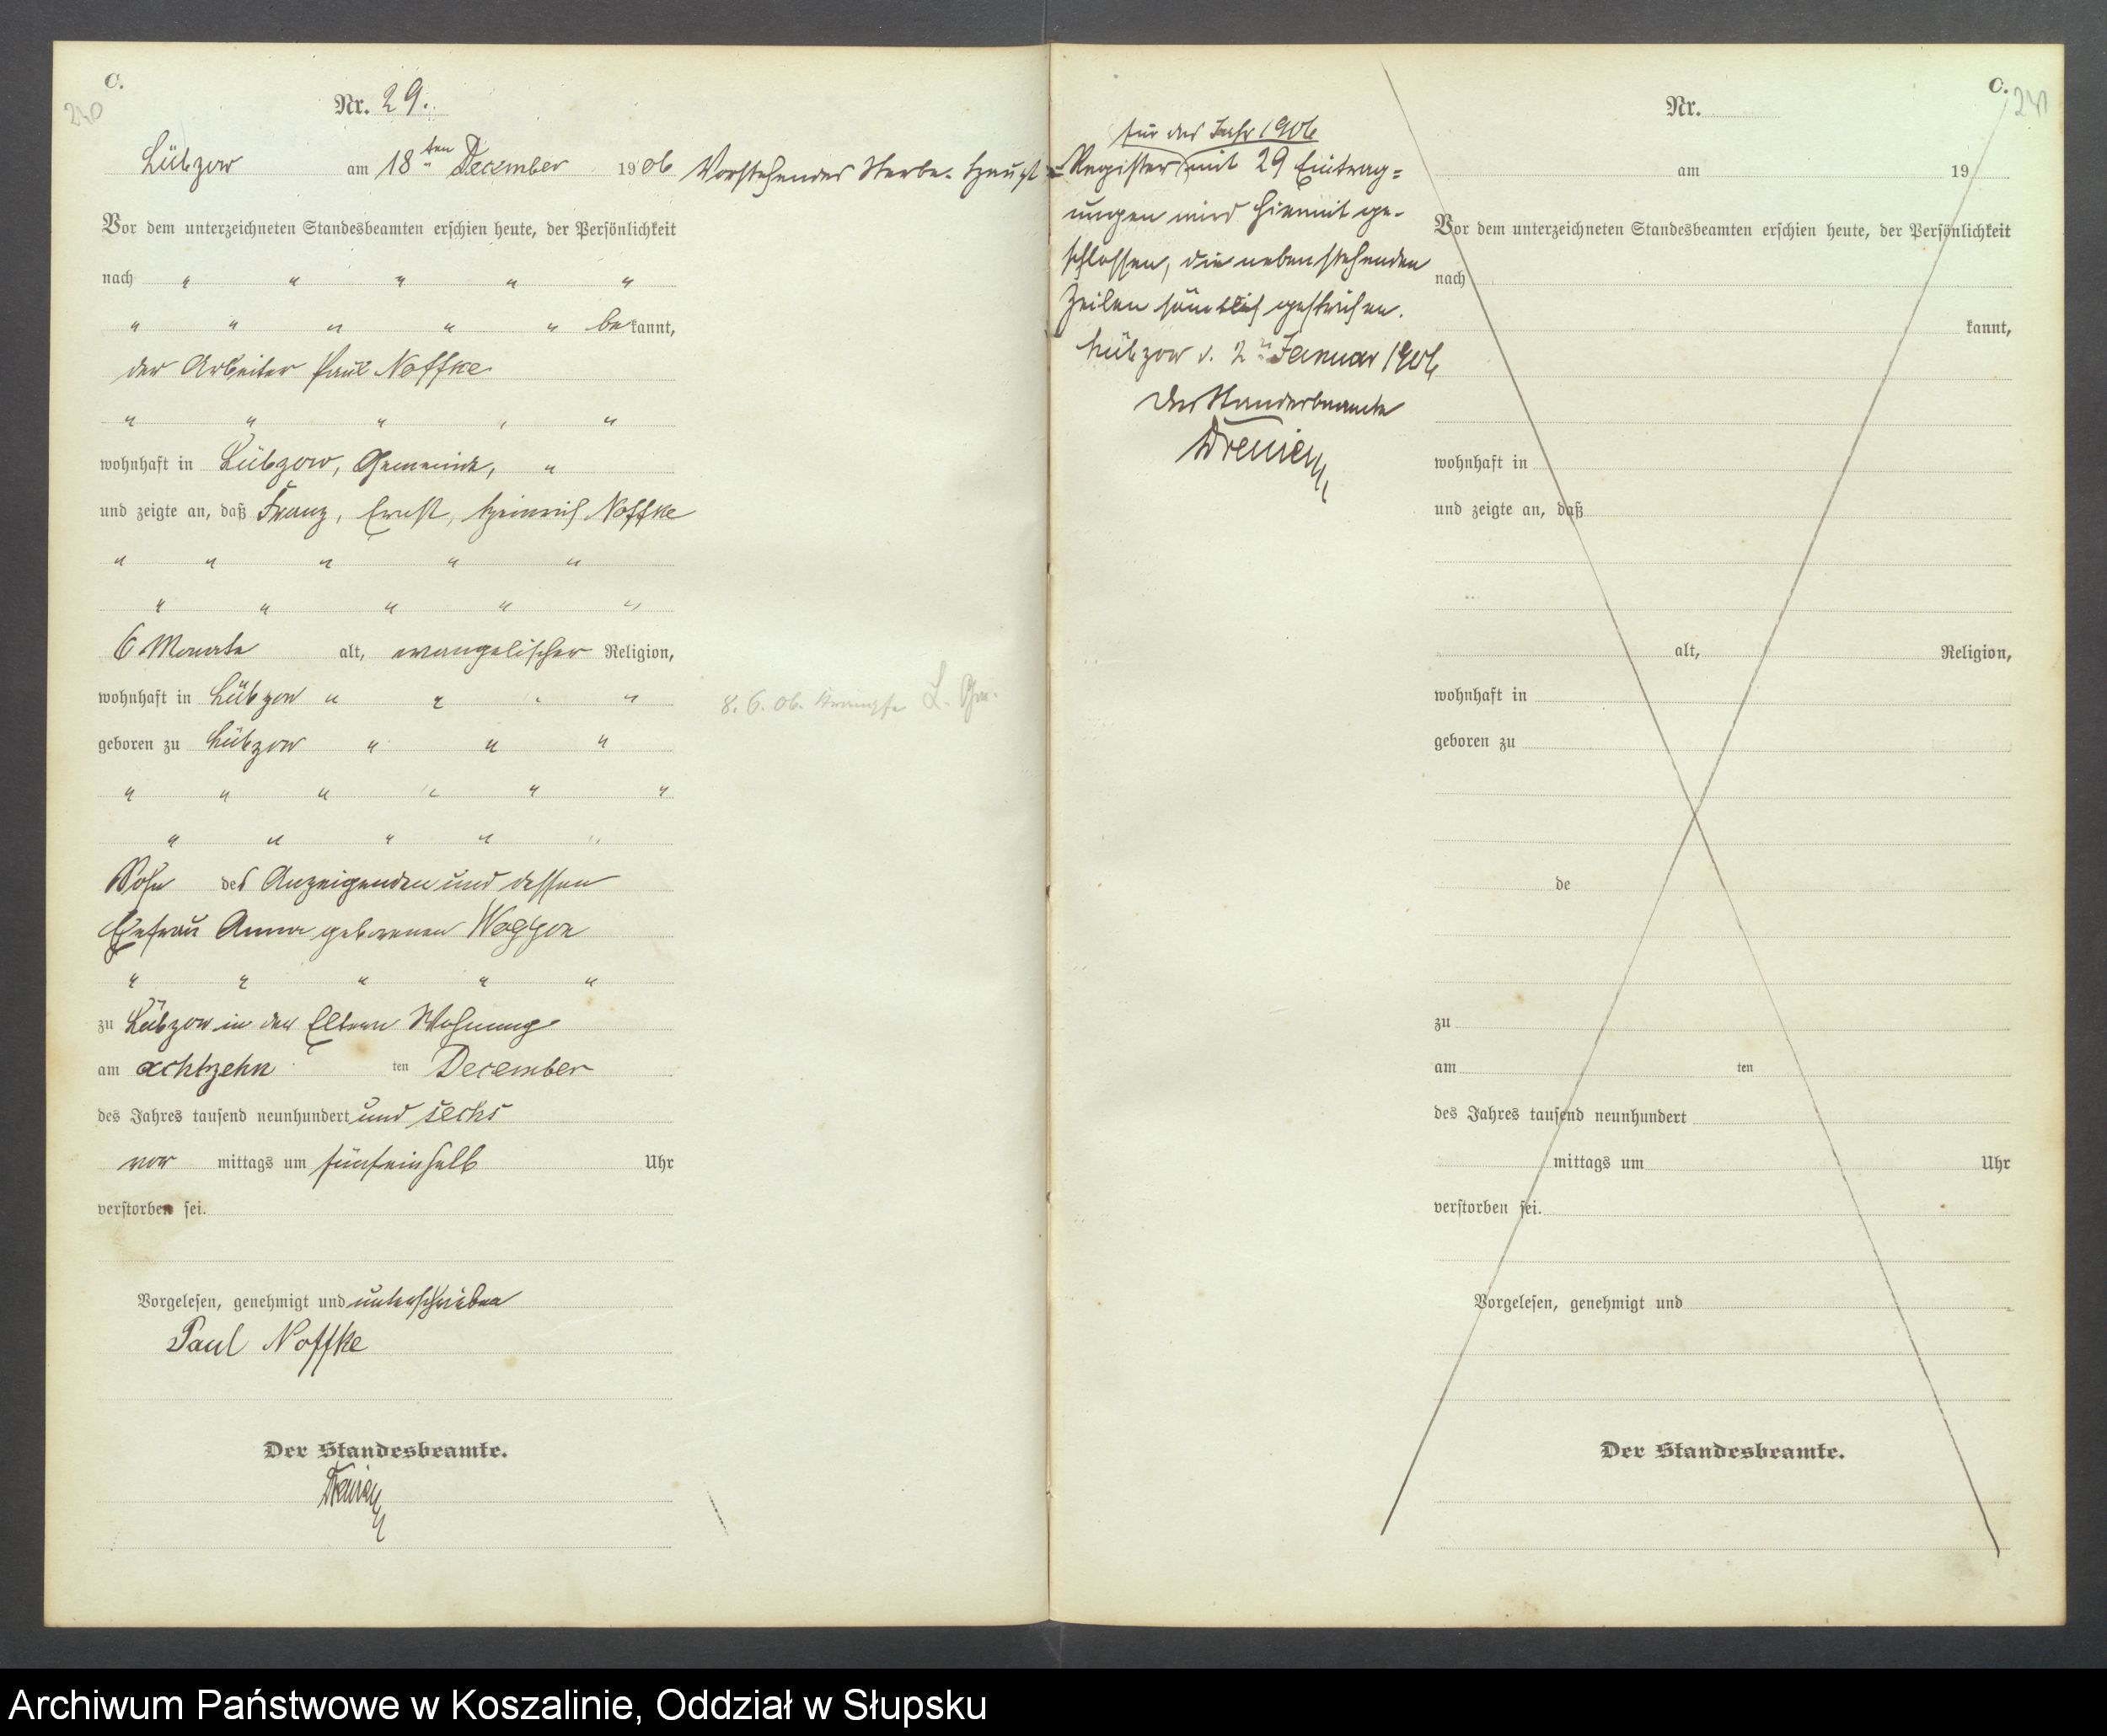 C.
240
Nr. 29.
Lübzow am 18ten December 1906
Vor dem unterzeichneten Standesbeamten erschien heute, der Persönlichkeit
nach " " " " "
" " " " " bekannt,
der Arbeiter Paul Noffke
" " " " "
wohnhaft in Lübzow, Gemeinde, "
und zeigte an, daß Franz, Ernst, Heinrich Noffke
" " " " "
" " " " "
6 Monate alt, evangelischer Religion,
wohnhaft in Lübzow " " " "
geboren zu Lübzow " " "
" " " " " "
" " " " "
Sohn des Anzeigenden und dessen
Ehefrau Anna geborenen
" " " " "
zu Lübzow in der Eltern Wohnung
am achtzehn ten December
des Jahres tausend neunhundert und sechs
vor mittags um fünfeinhalb Uhr
verstorben sei.
Vorgelesen, genehmigt und unterschrieben
Paul Noffke
Der Standesbeamte.
8. 6. 06. Krämpfe L. Gem.
für das Jahr 1906
Vorstehendes Sterbe-Haupt-Register mit 29 Eintrag=
ungen wird hiermit ge-
schlossen, die nebenstehenden
Zeilen sämtlich gestrichen.
Lübzow d. 2n Januar 1906
Der Standesbeamte
C.
241
Nr.
am 19
Vor dem unterzeichneten Standesbeamten erschien heute, der Persönlichkeit
nach
kannt,
wohnhaft in
und zeigte an, daß
alt, Religion,
wohnhaft in
geboren zu
de
zu
am ten
des Jahres tausend neunhundert
mittags um Uhr
verstorben sei.
Vorgelesen, genehmigt und
Der Standesbeamte.
Archiwum Państwowe w Koszalinie, Oddział w Słupsku